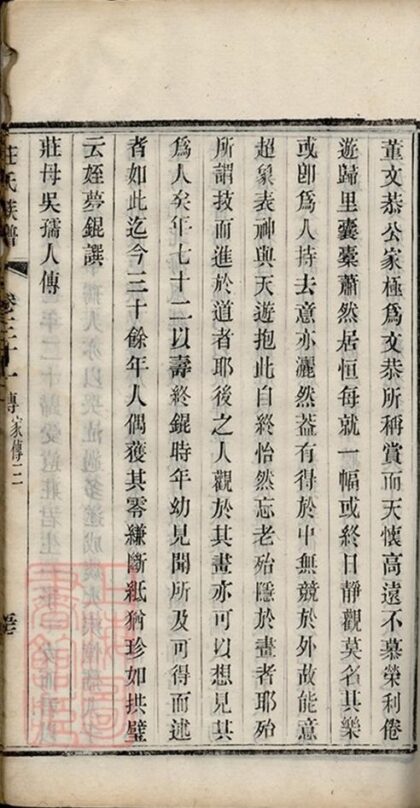 董文恭公家極為文恭所稱賞而天懷高遠不慕榮利倦
遊歸里囊橐蕭然居恒每就一幅或終日靜觀莫名其樂
或卽為人持去意亦灑然葢有得於中無競於外故能意
超象表神與天遊抱此自終怡然忘老殆隱於畫者耶殆
所謂技而進於道者耶後之人觀於其畫亦可以想見其
為人矣年七十二以壽終錕時年幼見聞所及可得而述
者如此迄今三十餘年人偶獲其零縑斷紙猶珍如拱璧
云姪夢錕譔
莊母吳孺人傳
莊氏族譜
卷二十一
傳
家傳二